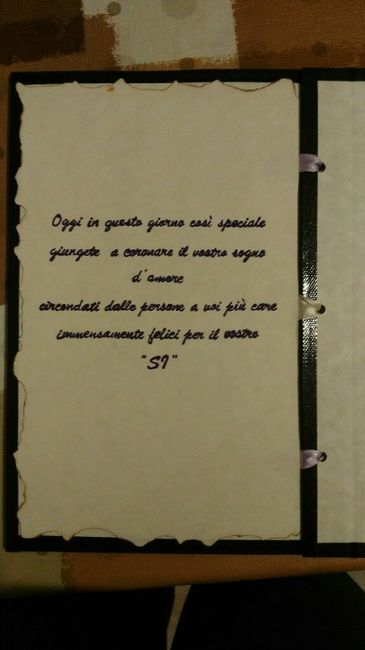 Oggi in questo giorno così speciale
giungete a coronare il vostro sogno
d'amore
circondati dalle persone a voi più care
immensamente felici per il vostro
"SI"